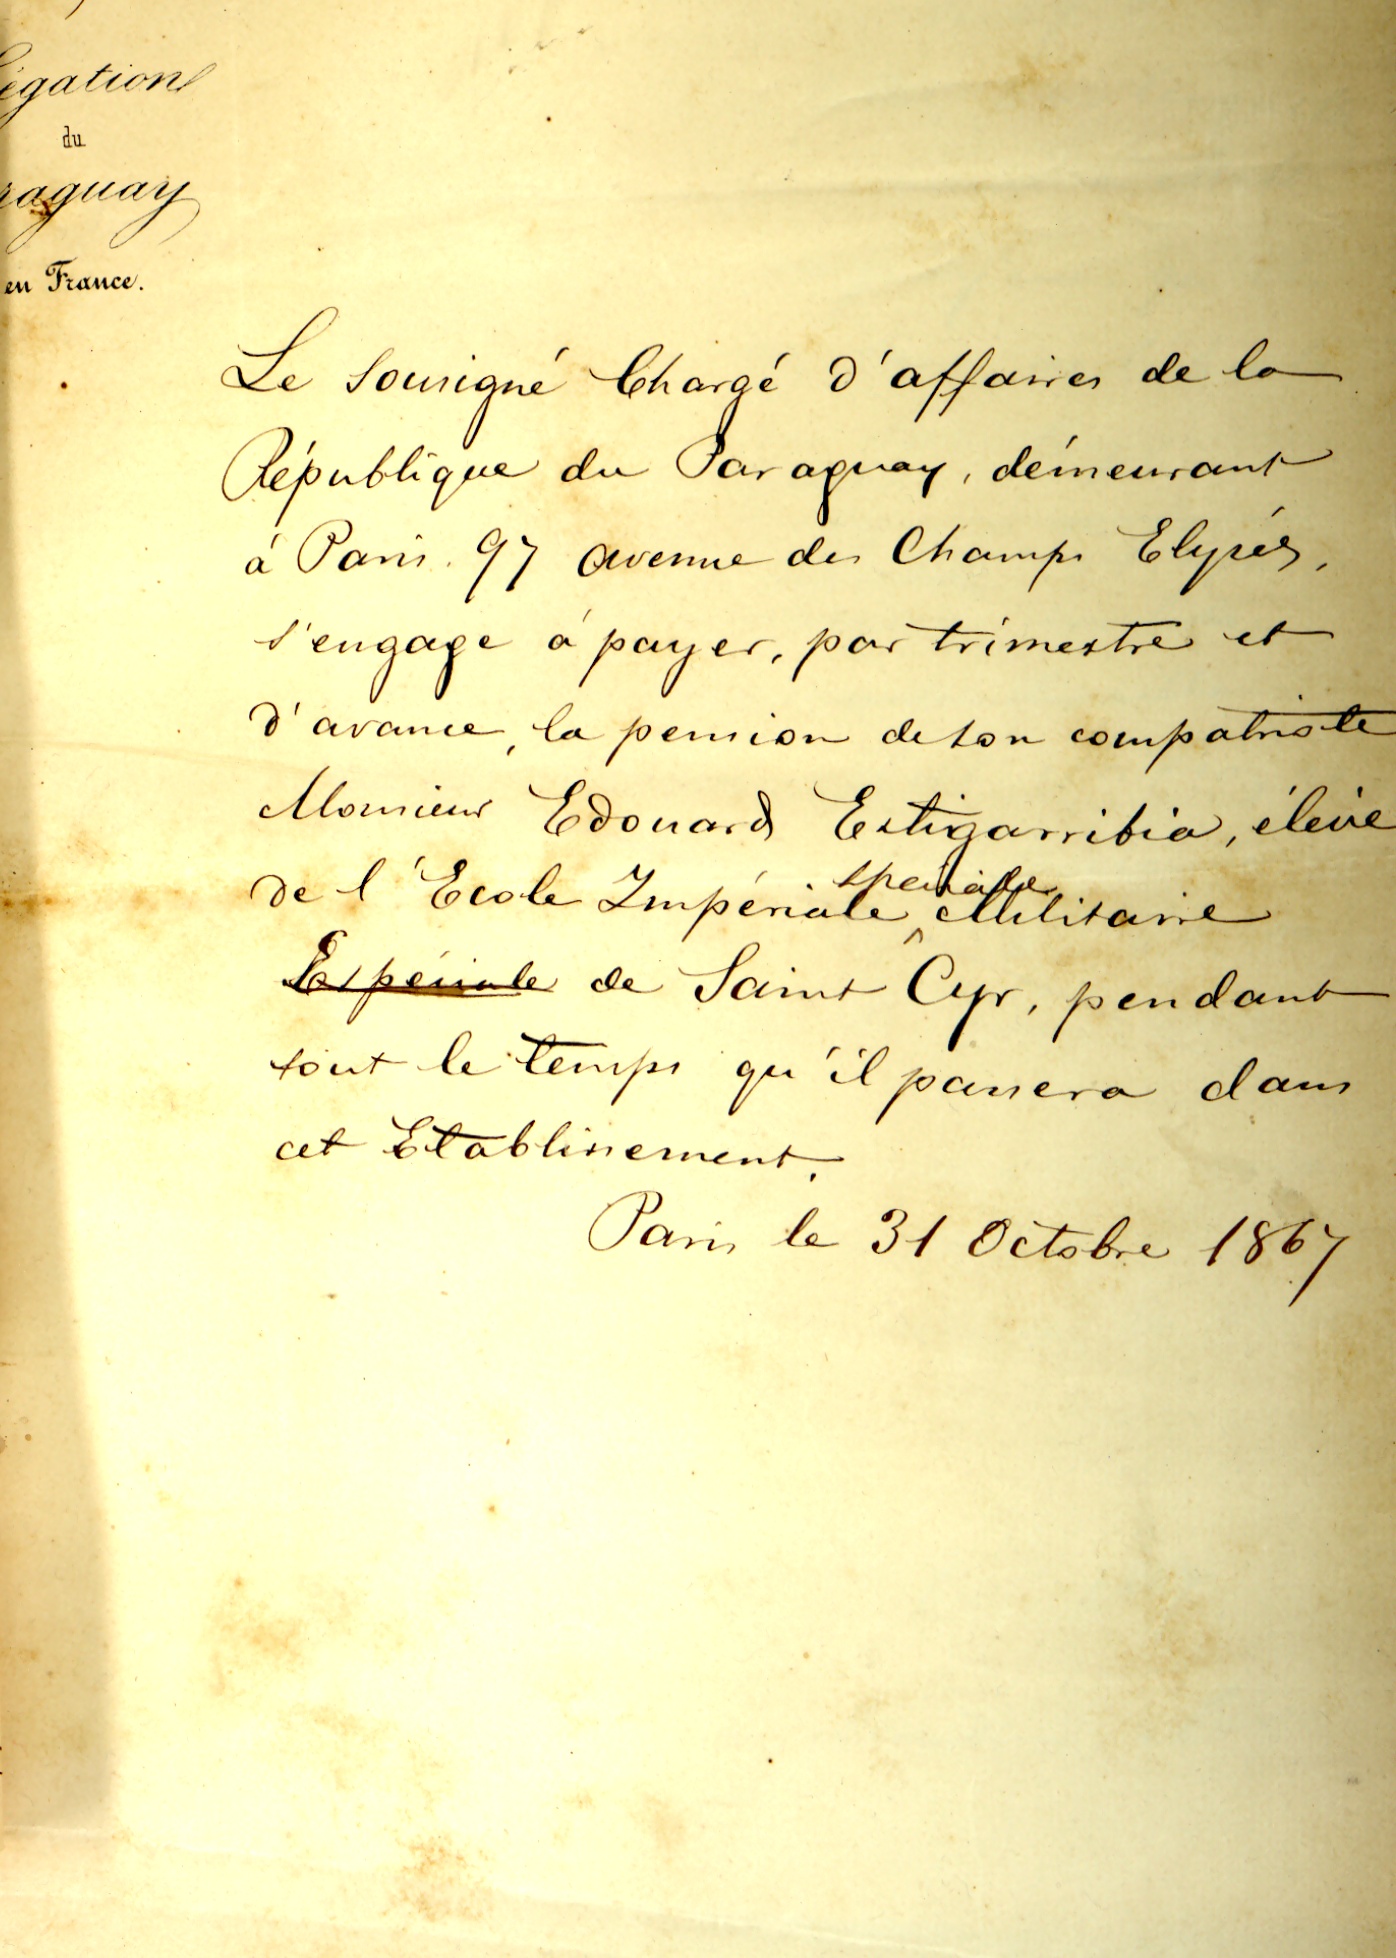 égation
du
raguay
en France.
Le sousigné Chargé d'affaires de la
République du Paraguay, démeurant
à Paris. 97 avenue des Champs Elysés,
s'engage à payer, par trimestre et
d'avance, la pension de son compatriote
Monsieur Edouard Estigarribia, élève
spéciale
de l'Ecole Impériale Militaire
Espériale de Saint Cyr, pendant
tout le temps qu'il passera dans
cet Etablissement.
Paris le 31 Octobre 1867